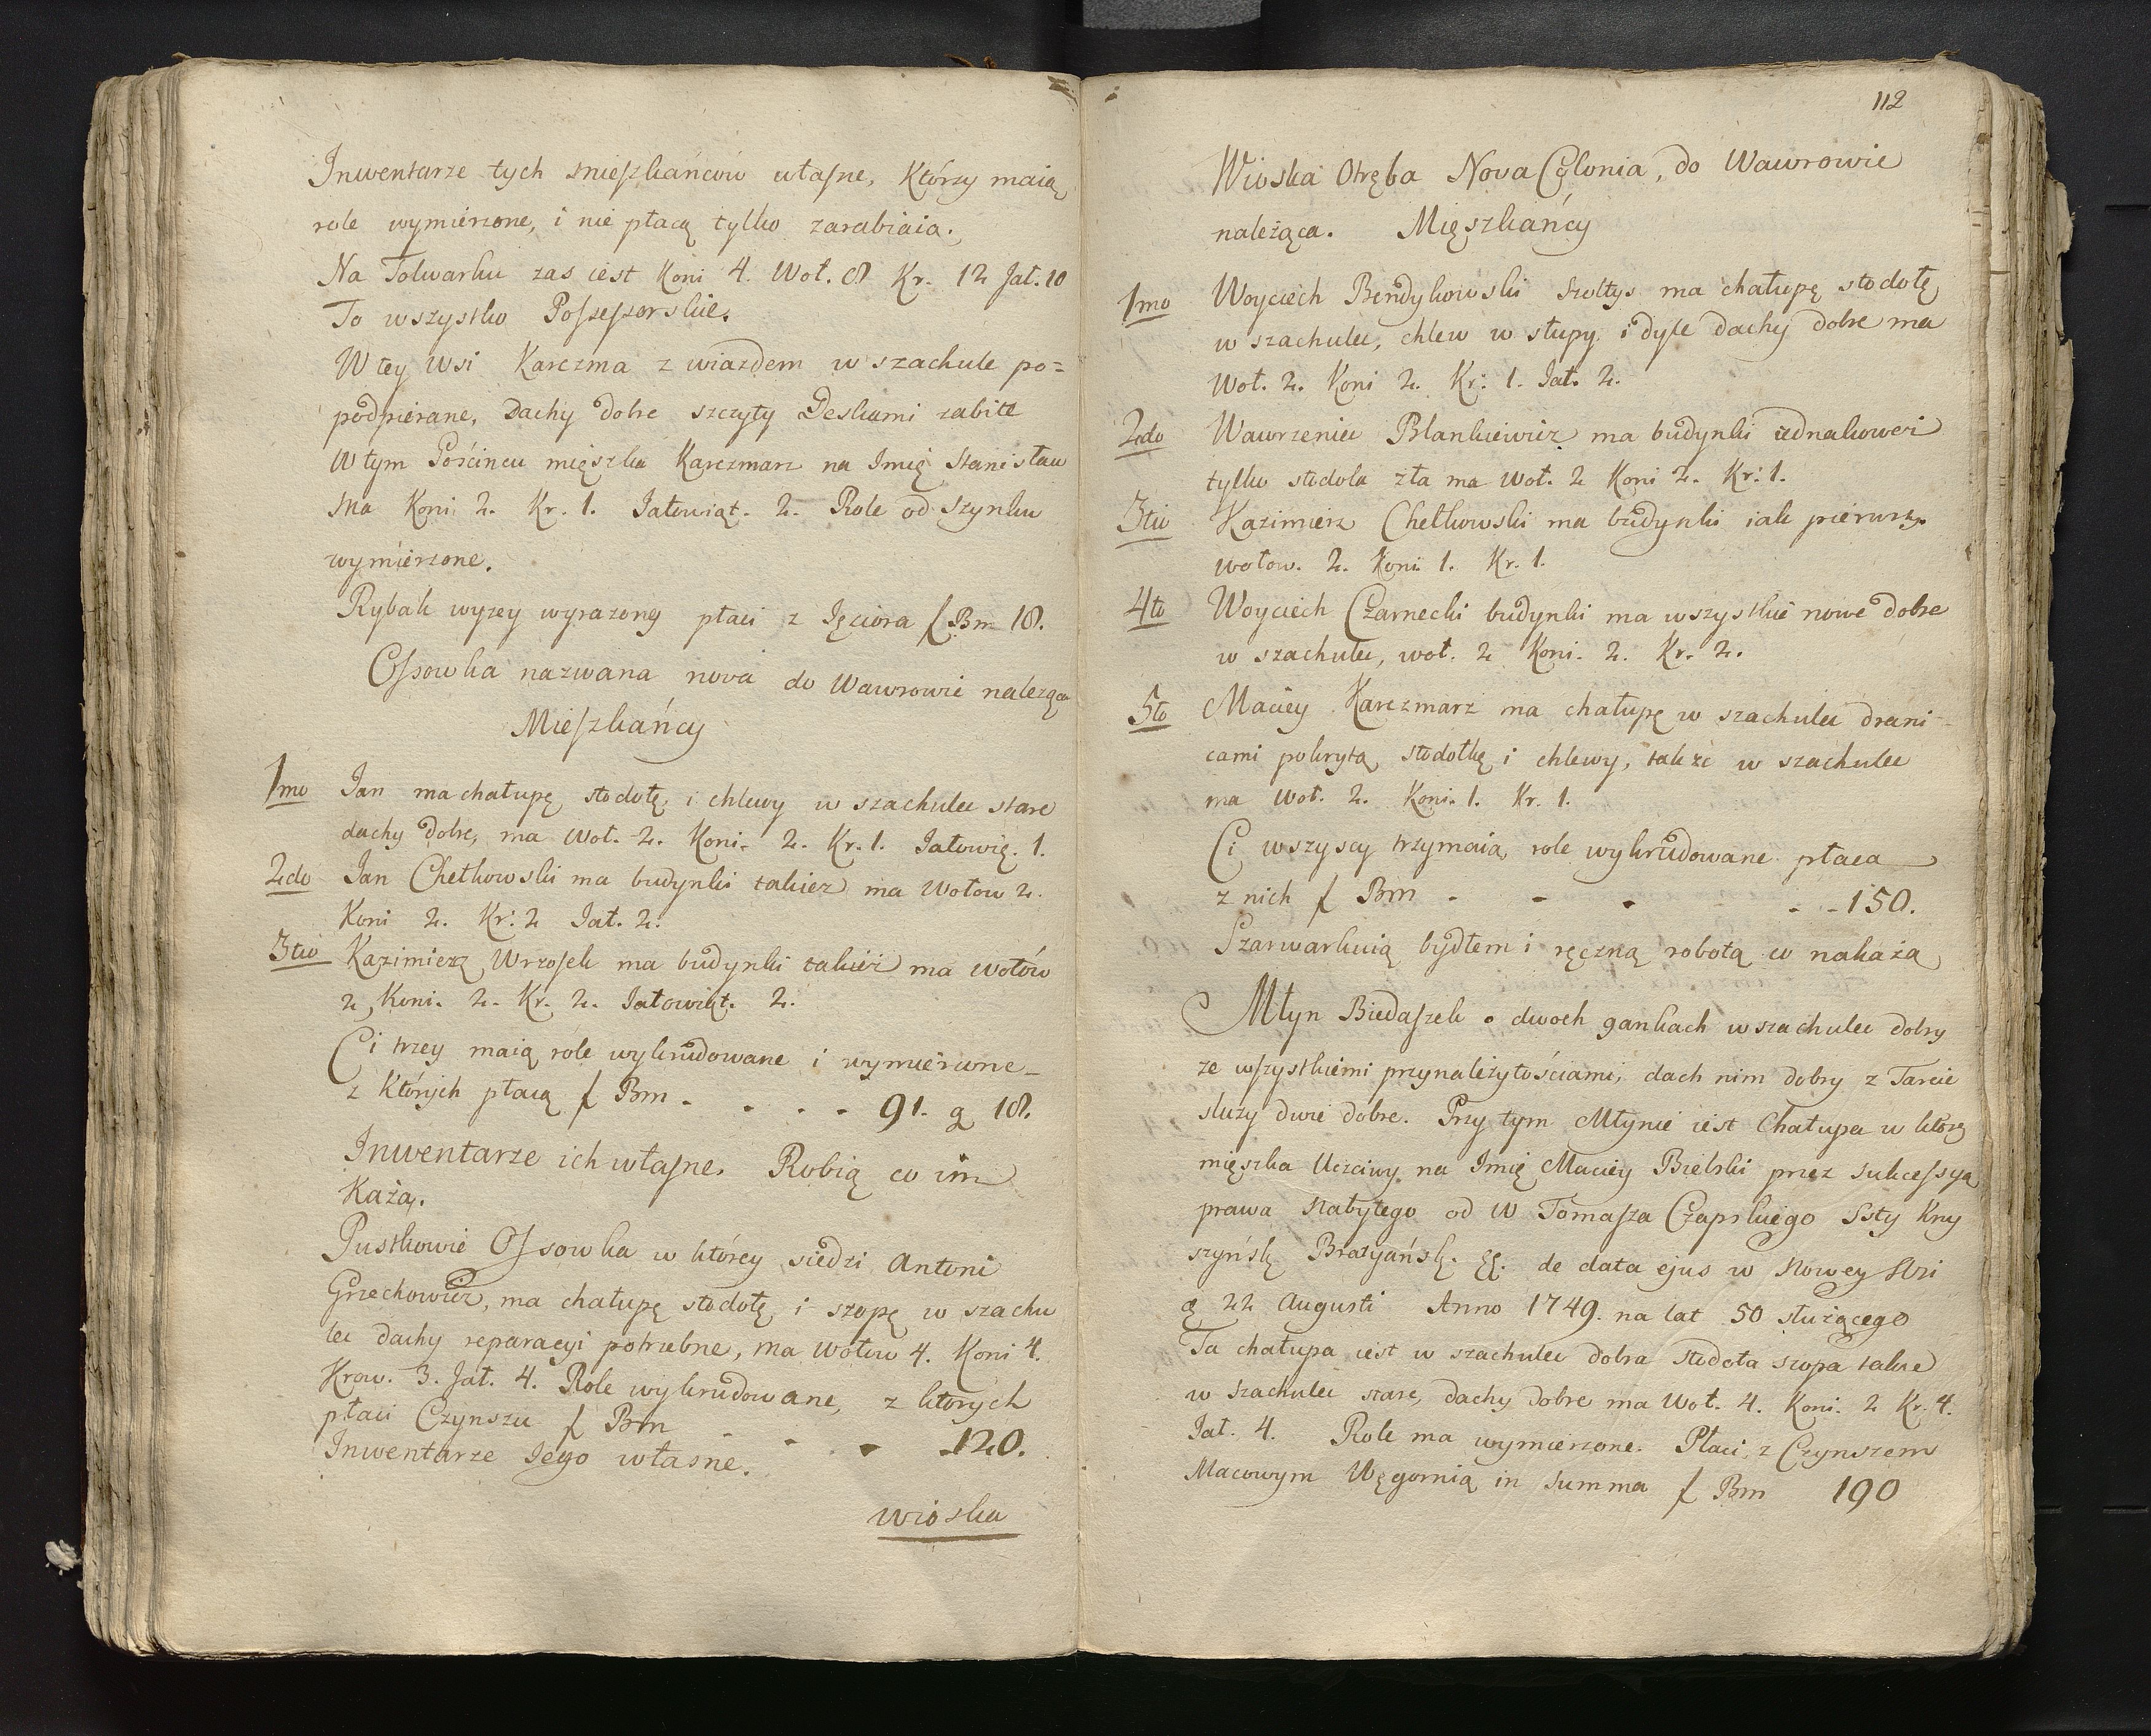 Inwentarze tych mieszkańców własne, Którzy maią
role wymierzone, i nie płacą tylko zarabiaią.
Na Folwarku zas iest Koni 4. Woł. 8 Kr. 12 Jał. 10
To wszystko Possessorskie.
W tey Wsi Karczma z wiazdem w szachulc po=
podpierane, Dachy dobre szczyty Deskami zabite
W tym Gościncu mięszka Karczmarz na Imię Stanisław
Ma Koni 2. Kr. 1. Jałowiąt. 2. Role od Szynku
wymierzone.
Rybak wyzey wyrazony płaci z Jęziora f Bm 18.
Ossowka nazwana nova do Wawrowic naleząca
Mieszkańcy
1mo Jan ma chałupę, stodołę, i chlewy w szachulec stare
dachy dobre, ma Woł. 2. Koni. 2. Kr. 1. Jałowię. 1.
2do Jan Chełkowski ma budynki takież ma Wołow 2.
Koni 2. Kr: 2 Jał. 2.
3tio Kazimierz Wrzosek ma budynki takież ma wołów
2, Koni. 2. Kr. 2. Jałowiąt. 2.
Ci trzey maią role wykrudowane i wymierzone
z których płacą f Bm - - - - 91. g 18.
Inwentarze ich własne. Robią co im
Każą.
Pustkowie Ossowka w którey siedzi Antoni
Grzechowicz, ma chałupę stodołę, i szopę w szachu
lec dachy reparacyi potrzebne, ma Wołow 4. Koni 4.
Krow. 3. Jał. 4. Role wykrudowane, z ktorych
płaci Czynszu f Bm - - - - 120.
Inwentarze Jego własne.
Wioska
112
Wioska Otręba Nova Colonia, do Wawrowic
należąca. Mięszkańcy
1mo Woyciech Bendykowski Szołtys ma chałupę stodołę,
w szachulec, chlew w słupy i dyle dachy dobre ma
Woł. 2. Koni 2. Kr: 1. Jał. 2.
2do Wawrzeniec Plankiewicz ma budynki iednakowei
tylko stodola zła ma Woł. 2 Koni 2. Kr: 1.
3tio Kazimierz Chełkowski ma budynki iak pierwszy
wołow. 2. Koni 1. Kr. 1.
4to Woyciech Czarnecki budynki ma wszystkie nowe dobre
w szachulec, woł. 2 Koni. 2. Kr. 2.
5to Maciey Karczmarz ma chałupę w szachulec drani-
cami pokrytą, stodołkę i chlewy, także w szachulec
ma Woł. 2. Koni. 1. Kr. 1.
Ci wszyscy trzymaią role wykrudowane płaca
z nich f Bm - - - - - 150.
Szarwarkuią bydłem i ręczną robotą co nakażą
Młyn Biedaszek o dwoch gankach w szachulec dobry
ze wszystkiemi przynależytościami, dach nim dobry z Tarcic
sluzy dwie dobre. Przy tym Młynie iest Chałupa w którey
mięszka Uczciwy na Imię Maciey Bielski przez sukcessyą
prawa nabytego od W Tomasza Czapskiego Ssty Kny
szyńsk Bratyańsk. de data ejus w Nowey Wsi
22 Augusti Anno 1749. na lat 50 służącego
Ta chałupa iest w szachulec dobra stodoła szopa takze
w szachulec stare, dachy dobre ma Woł. 4. Koni. 2 Kr. 4.
Jał. 4. Role ma wymierzone. Płaci z Czynszem
Macowym Węgornią in Summa f Bm 190